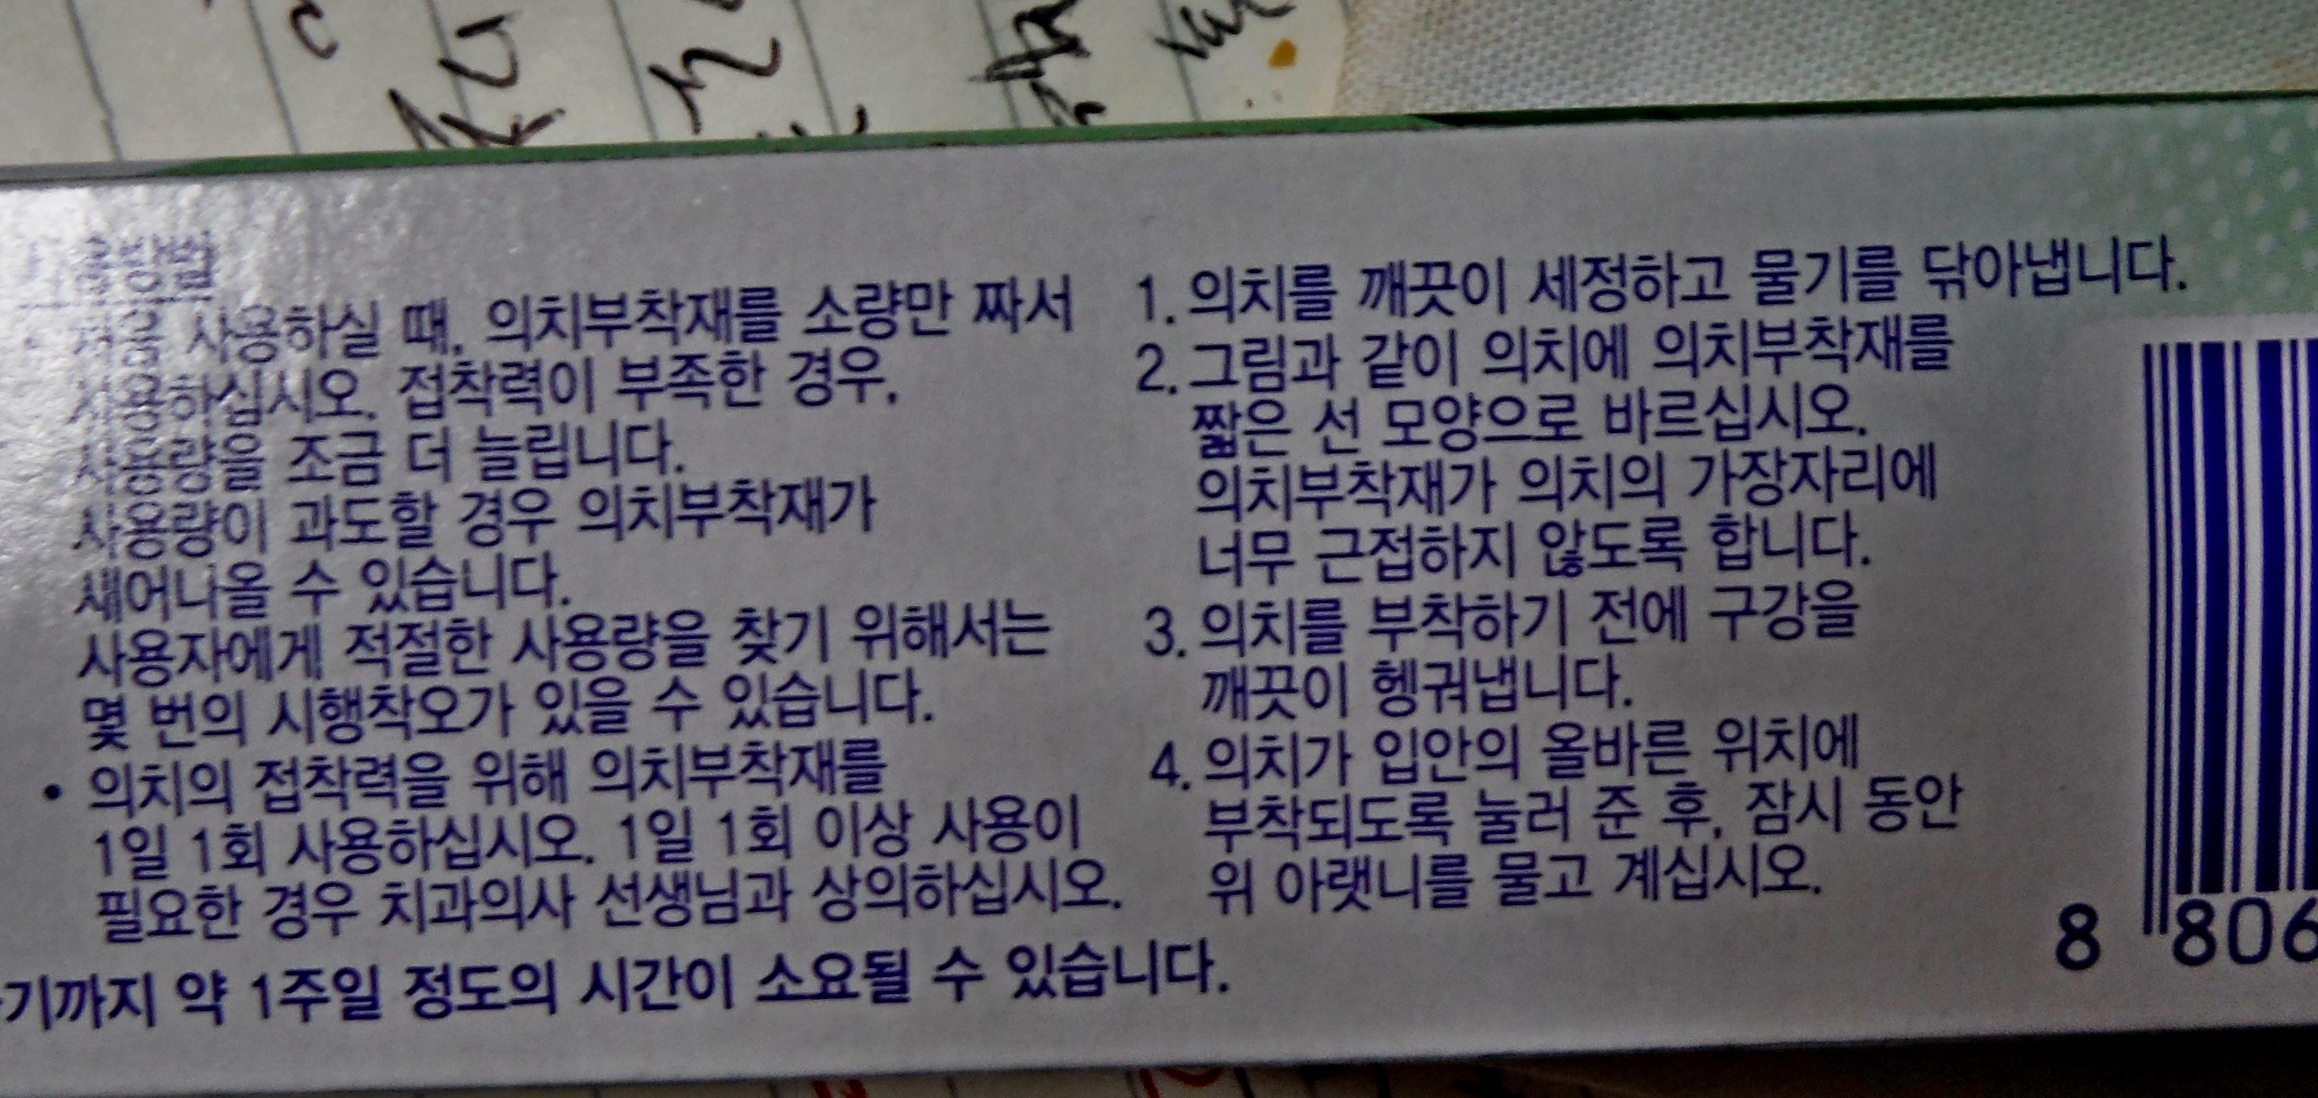 사용방법
• 처음 사용하실 때, 의치부착재를 소량만 짜서
사용하십시오. 접착력이 부족한 경우,
사용량을 조금 더 늘립니다.
사용량이 과도할 경우 의치부착재가
새어나올 수 있습니다.
사용자에게 적절한 사용량을 찾기 위해서는
몇 번의 시행착오가 있을 수 있습니다.
• 의치의 접착력을 위해 의치부착재를
1일 1회 사용하십시오. 1일 1회 이상 사용이
필요한 경우 치과의사 선생님과 상의하십시오.
기까지 약 1주일 정도의 시간이 소요될 수 있습니다.
1. 의치를 깨끗이 세정하고 물기를 닦아냅니다.
2. 그림과 같이 의치에 의치부착재를
짧은 선 모양으로 바르십시오.
의치부착재가 의치의 가장자리에
너무 근접하지 않도록 합니다.
3. 의치를 부착하기 전에 구강을
깨끗이 헹궈냅니다.
4. 의치가 입안의 올바른 위치에
부착되도록 눌러 준 후, 잠시 동안
위 아랫니를 물고 계십시오.
8 806